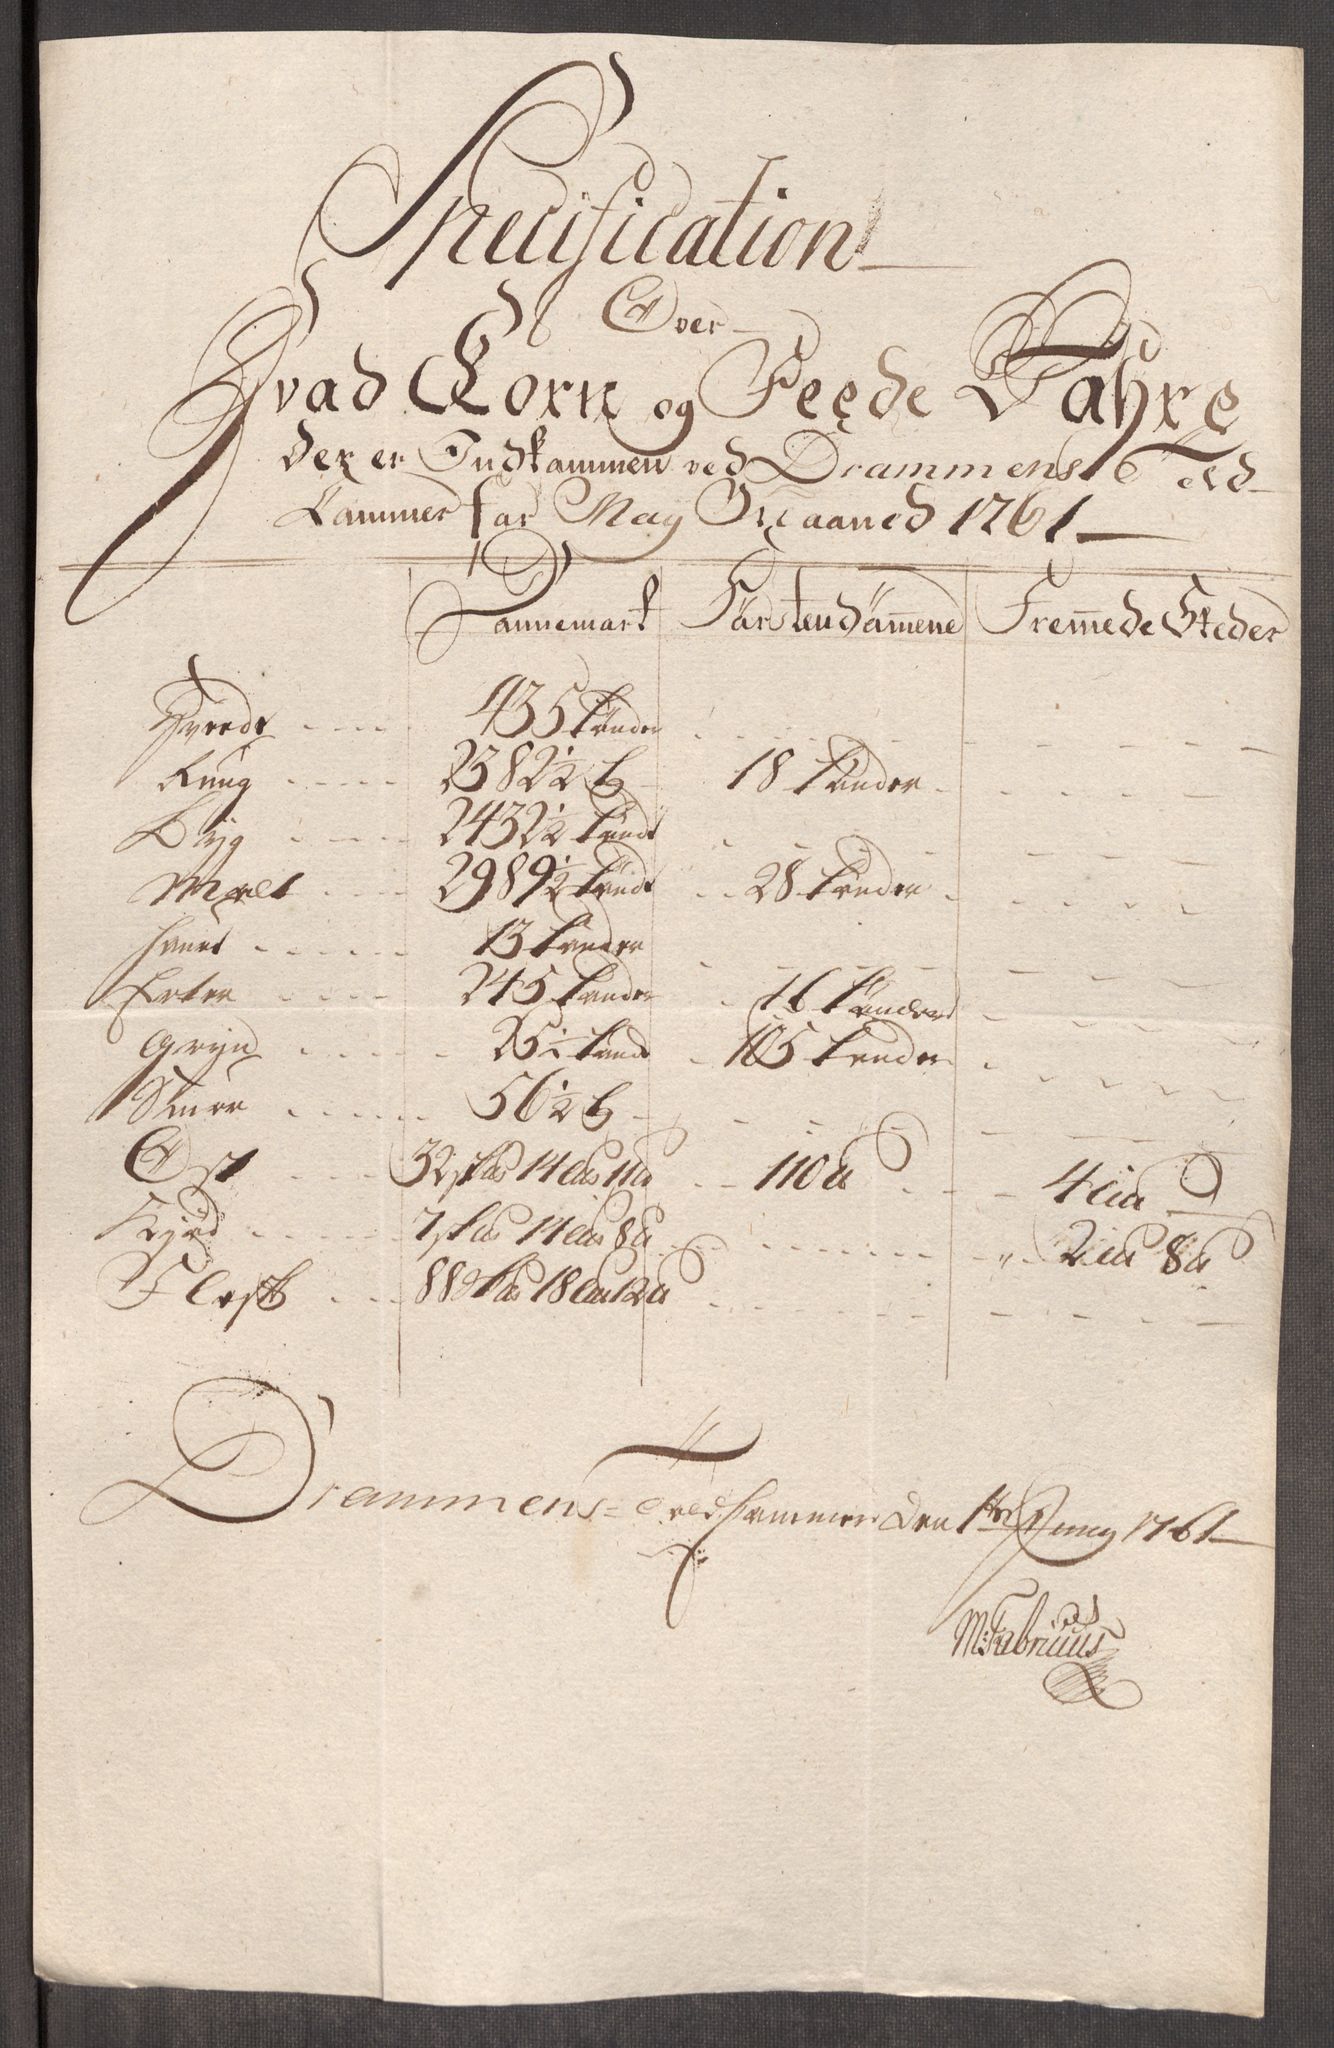 Specification
Over
Hvad Korn og Feede Vahre
der er Indkammen ved Drammens Told
Kammer for May Maaned 1761
Dannemark Förstendömmene Fremmede Steder
Hvede 435 tönder
Rug 2382½ t 18 tönder
Byg 2432½ tönd
Malt 2989½ tönd 28 tönder
Havre 13 tönder
Erter 245 tönder 16 tönder
Gryn 25½ tönd 105 tönder
Smör 56½ t
Ost 32 14 11 110 4
Kjöd 7 14 8 2 8
Flesk 88 18 12
Drammens Toldkammer den 1ste Juny 1761
M: Fabricius